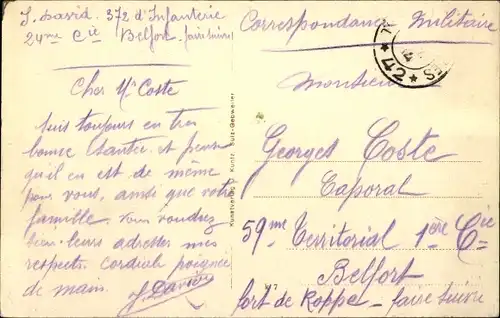 J. David. 372 d'Infanterie
24me Cie Belfort. faire suivre
Cher Mr Coste
suis toujours en très
bonne santée et pense
qu'il en est de même
pour vous, ainsi que votre
famille. Vous voudrez
bien leurs adresser mes
respects. cordiale poignée
de main.
J. David
Kunstverlag J. Kuntz Sulz-Gebweiler
Correspondance Militaire
* 42 *
Monsieur
Georges Coste
Caporal
59me Territorial 1ère Cie
Belfort
fort de Roppe - faire suivre